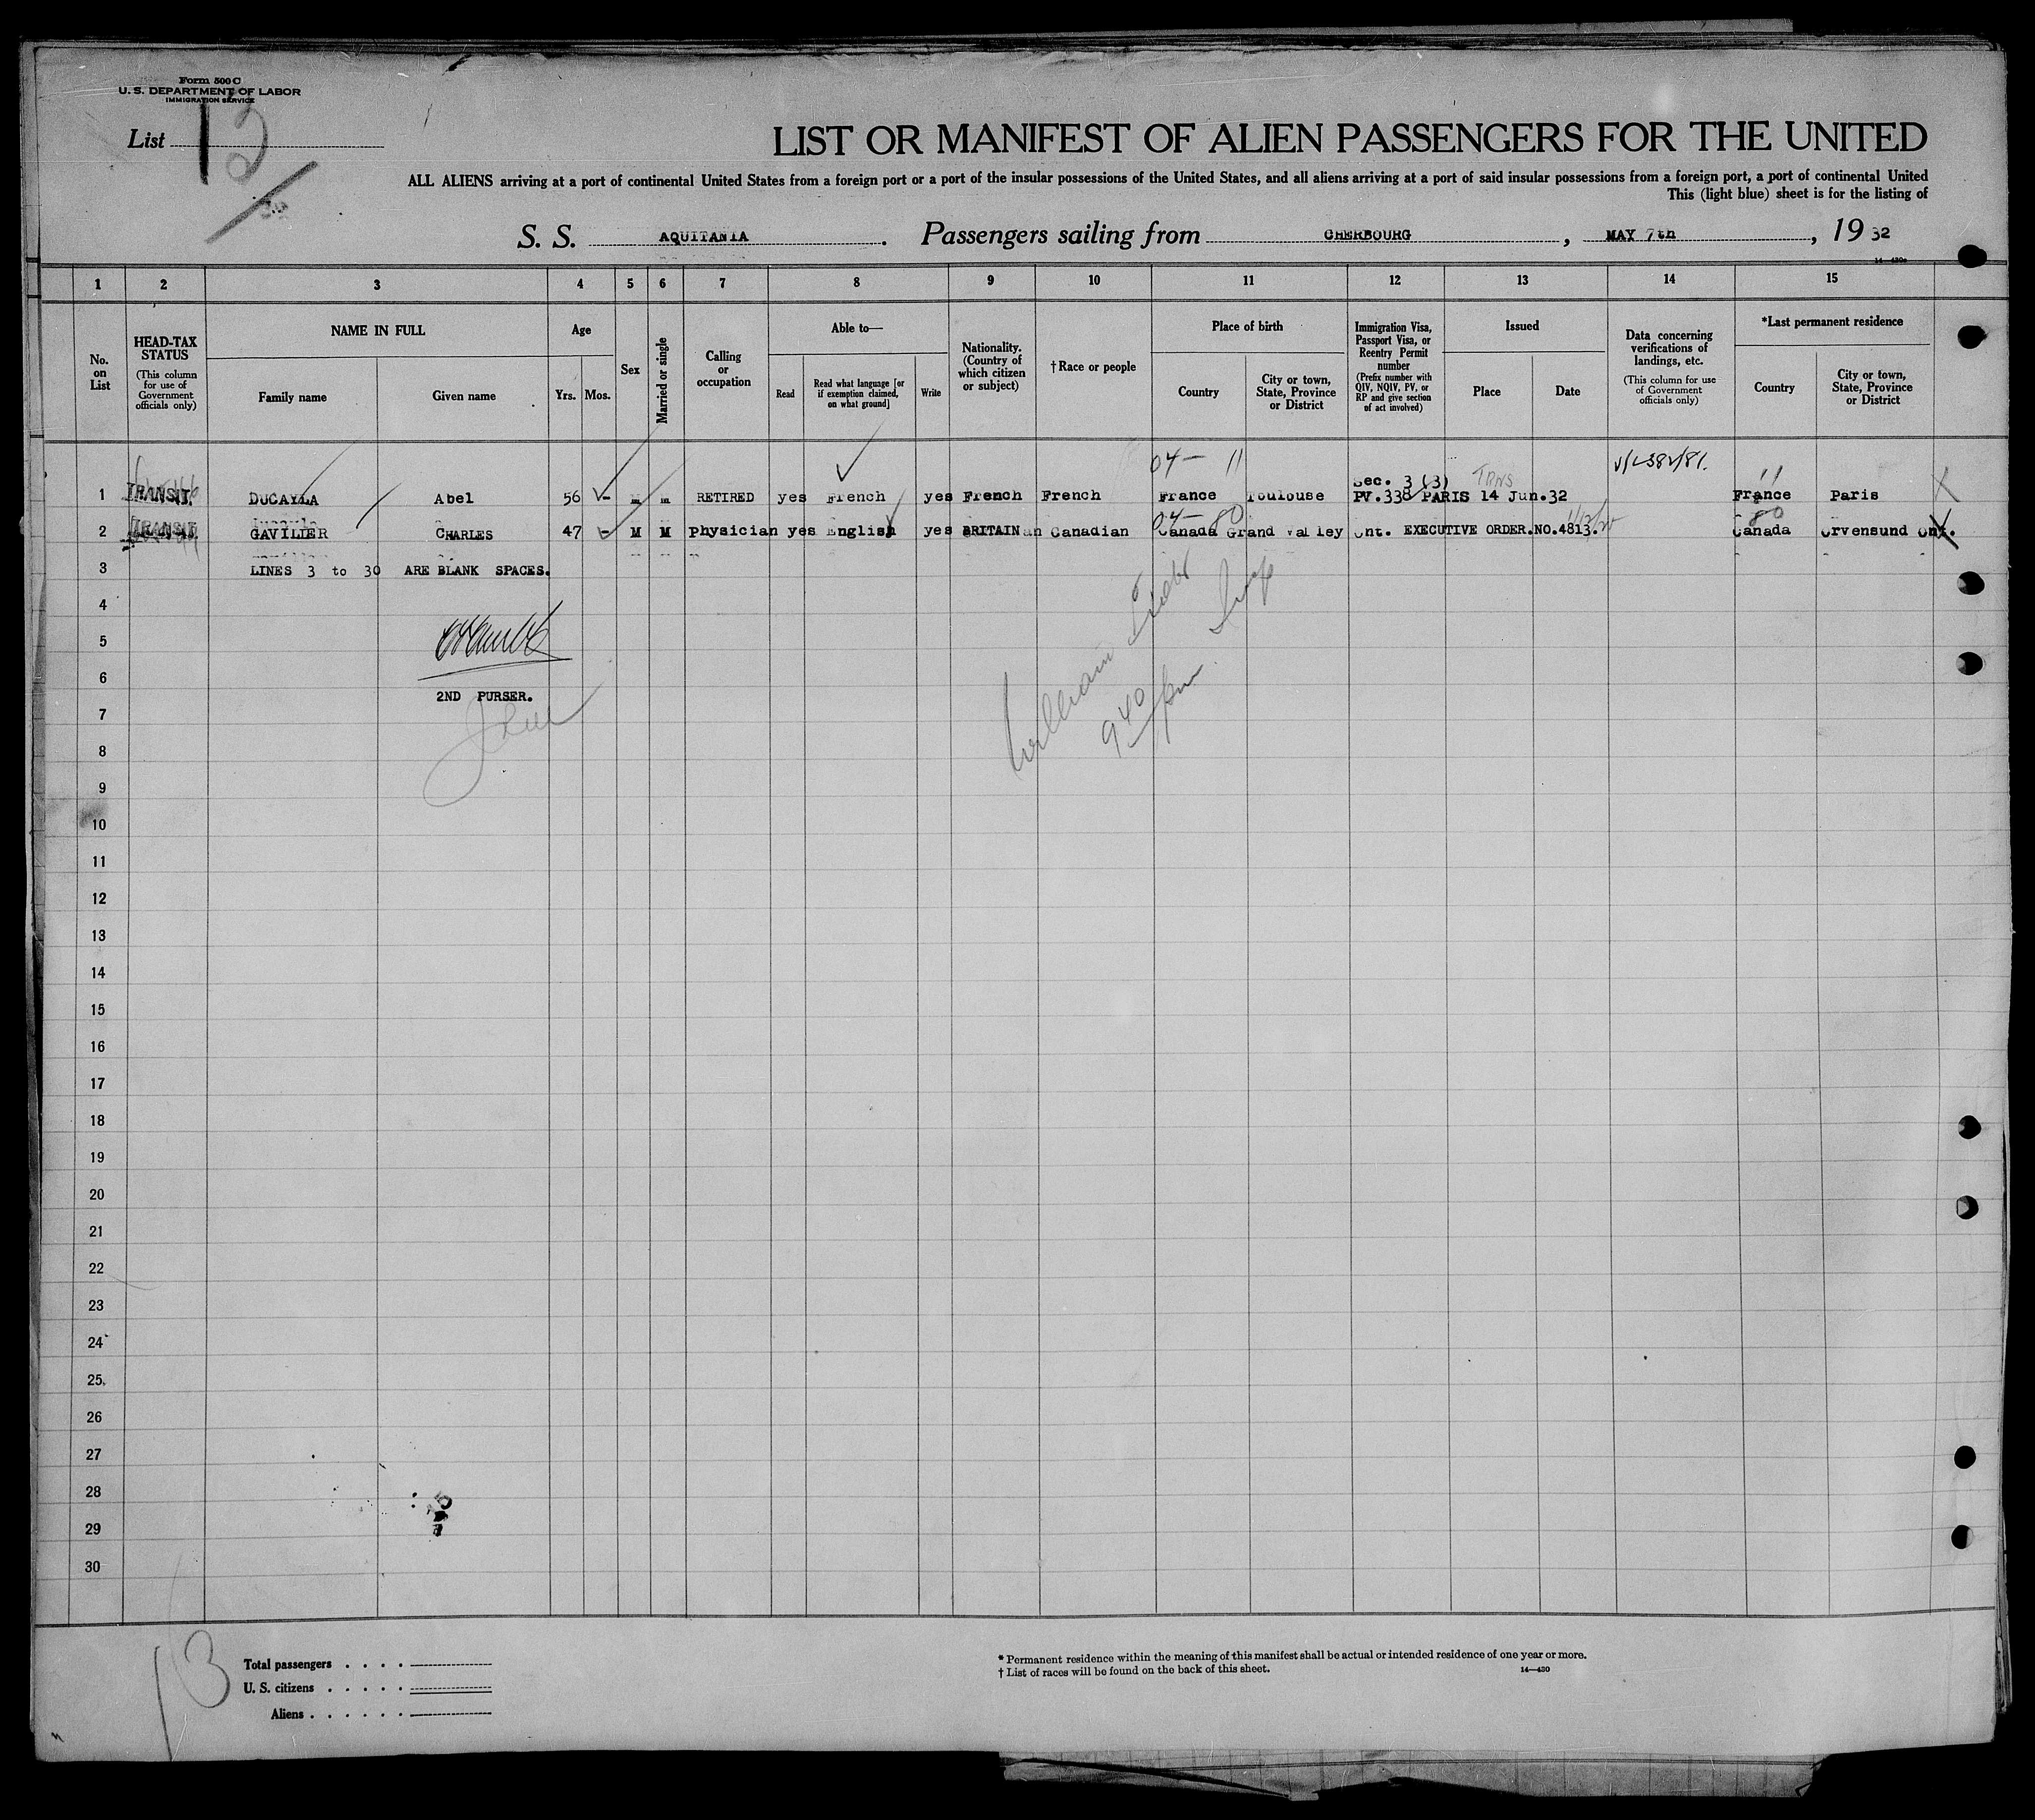 Form 500 C
U. S. DEPARTMENT OF LABOR
IMMIGRATION SERVICE
List 13
LIST OR MANIFEST OF ALIEN PASSENGERS FOR THE UNITED
ALL ALIENS arriving at a port of continental United States from a foreign port or a port of the insular possessions of the United States, and all aliens arriving at a port of said insular possessions from a foreign port, a port of continental United
This (light blue) sheet is for the listing of
S. S. AQUITANIA. Passengers sailing from CHERBOURG, MAY 7th, 19 32
14—430a
1 2 3 4 5 6 7 8 9 10 11 12 13 14 15
No. on List
HEAD-TAX STATUS
(This column for use of Government officials only)
NAME IN FULL
Family name
Given name
Age
Yrs. Mos.
Sex
Married or single
Calling or occupation
Able to—
Read
Read what language [or if exemption claimed, on what ground]
Write
Nationality. (Country of which citizen or subject)
†Race or people
Place of birth
Country
City or town, State, Province or District
Immigration Visa, Passport Visa, or Reentry Permit number
(Prefix number with QIV, NQIV, PV, or RP and give section of act involved)
Issued
Place
Date
Data concerning verifications of landings, etc.
(This column for use of Government officials only)
*Last permanent residence
Country
City or town, State, Province or District
04— 11
Sec. 3 (3) TRNS
11
1 TRANSIT. DUCAYLA Abel 56 - m m RETIRED yes French yes French French France Toulouse PV.338 PARIS 14 Jun.32 France Paris
04— 80
80
2 TRANSIT. GAVILIER CHARLES 47 - M M Physician yes English yes BRITAIN an Canadian Canada Grand Valley Ont. EXECUTIVE ORDER.NO.4813. Canada Orvensund Ont.
3 LINES 3 to 30 ARE BLANK SPACES.
4
5
6
2ND PURSER.
7
William
940 pm
8
9
10
11
12
13
14
15
16
17
18
19
20
21
22
23
24
25
26
27
28
29
30
13
Total passengers . . . .
U. S. citizens . . . . .
Aliens . . . . . .
* Permanent residence within the meaning of this manifest shall be actual or intended residence of one year or more.
† List of races will be found on the back of this sheet.
14—430